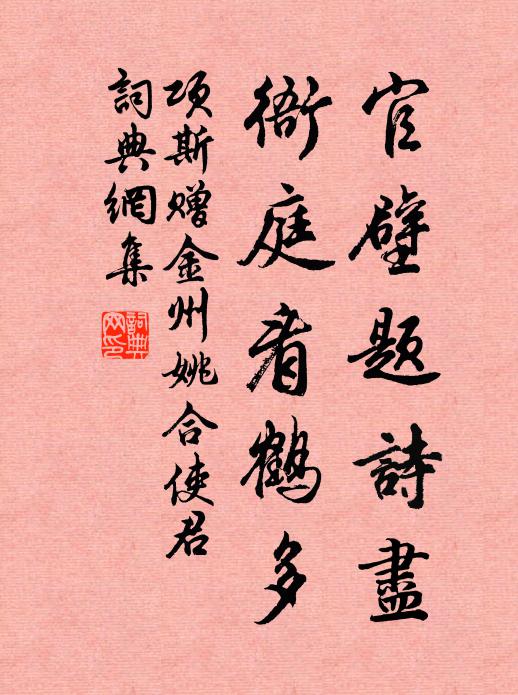 官壁題詩盡
衙庭看鶴多
项斯赠金州姚合使君
詞典網集
詞典
网印